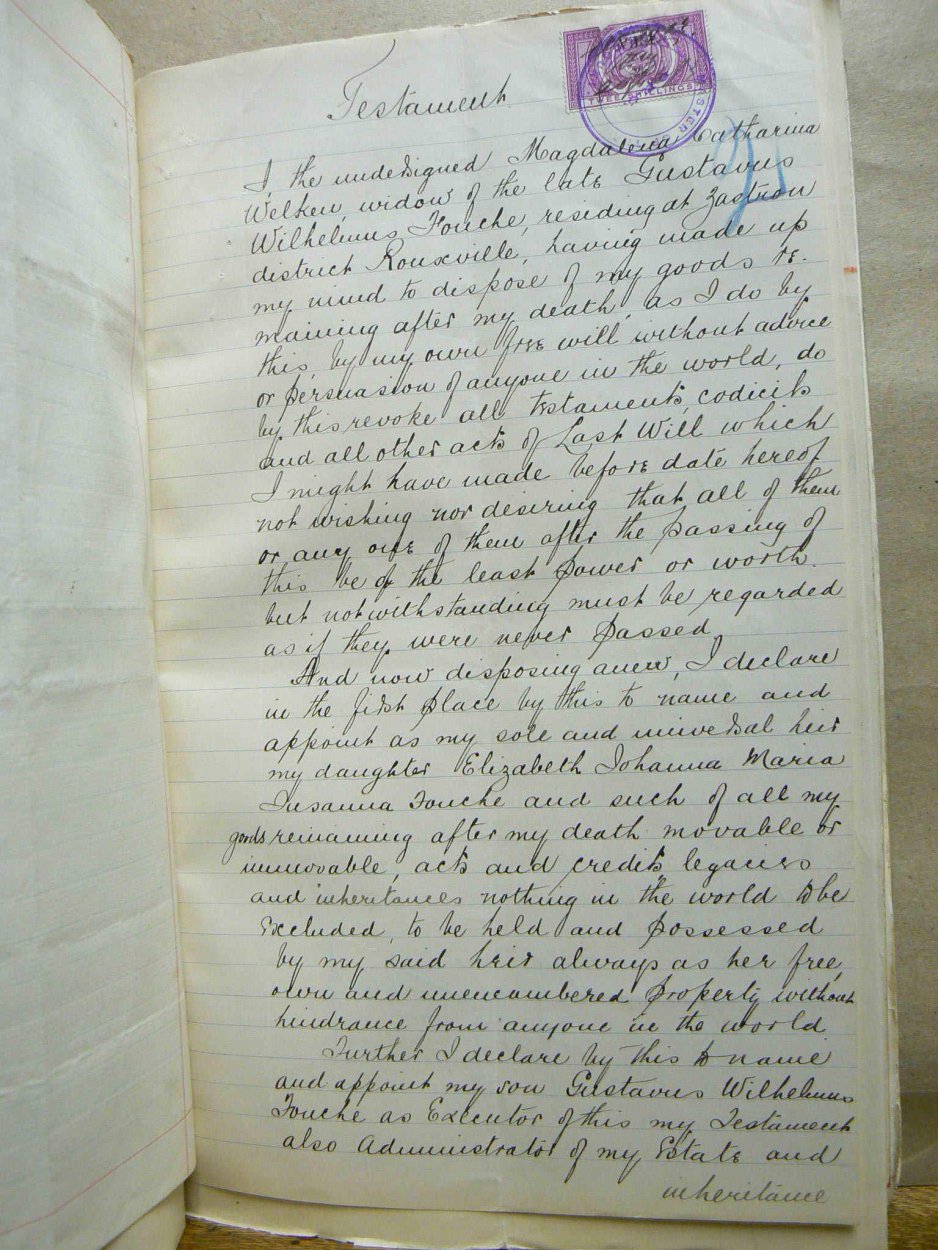 Testament
TWEE SHILLINGS
I, the undersigned Magdalena Catharina
Welken, widow of the late Gustavus
Wilhelmus Fouche, residing at Zastron
district Rouxville, having made up
my mind to dispose of my goods re-
maining after my death, as I do by
this, by my own free will without advice
or persuasion of anyone in the world, do
by this revoke all testaments, codicils
and all other acts of Last Will which
I might have made before date hereof
not wishing nor desiring that all of them
or any one of them after the passing of
this be of the least power or worth.
but notwithstanding must be regarded
as if they were never passed,
And now disposing anew, I declare
in the first place by this to name and
appoint as my sole and universal heir
my daughter Elizabeth Johanna Maria
Susanna Fouche and such of all my
goods remaining after my death movable or
immovable, acts and credits, legacies
and inheritances nothing in the world to be
Excluded, to be held and possessed
by my said heir always as her free,
own and unencumbered property without
hindrance from anyone in the world
Further I declare by this to name
and appoint my son Gustavus Wilhelmus
Fouche as Executor of this my Testament
also Administrator of my Estate and
inheritance